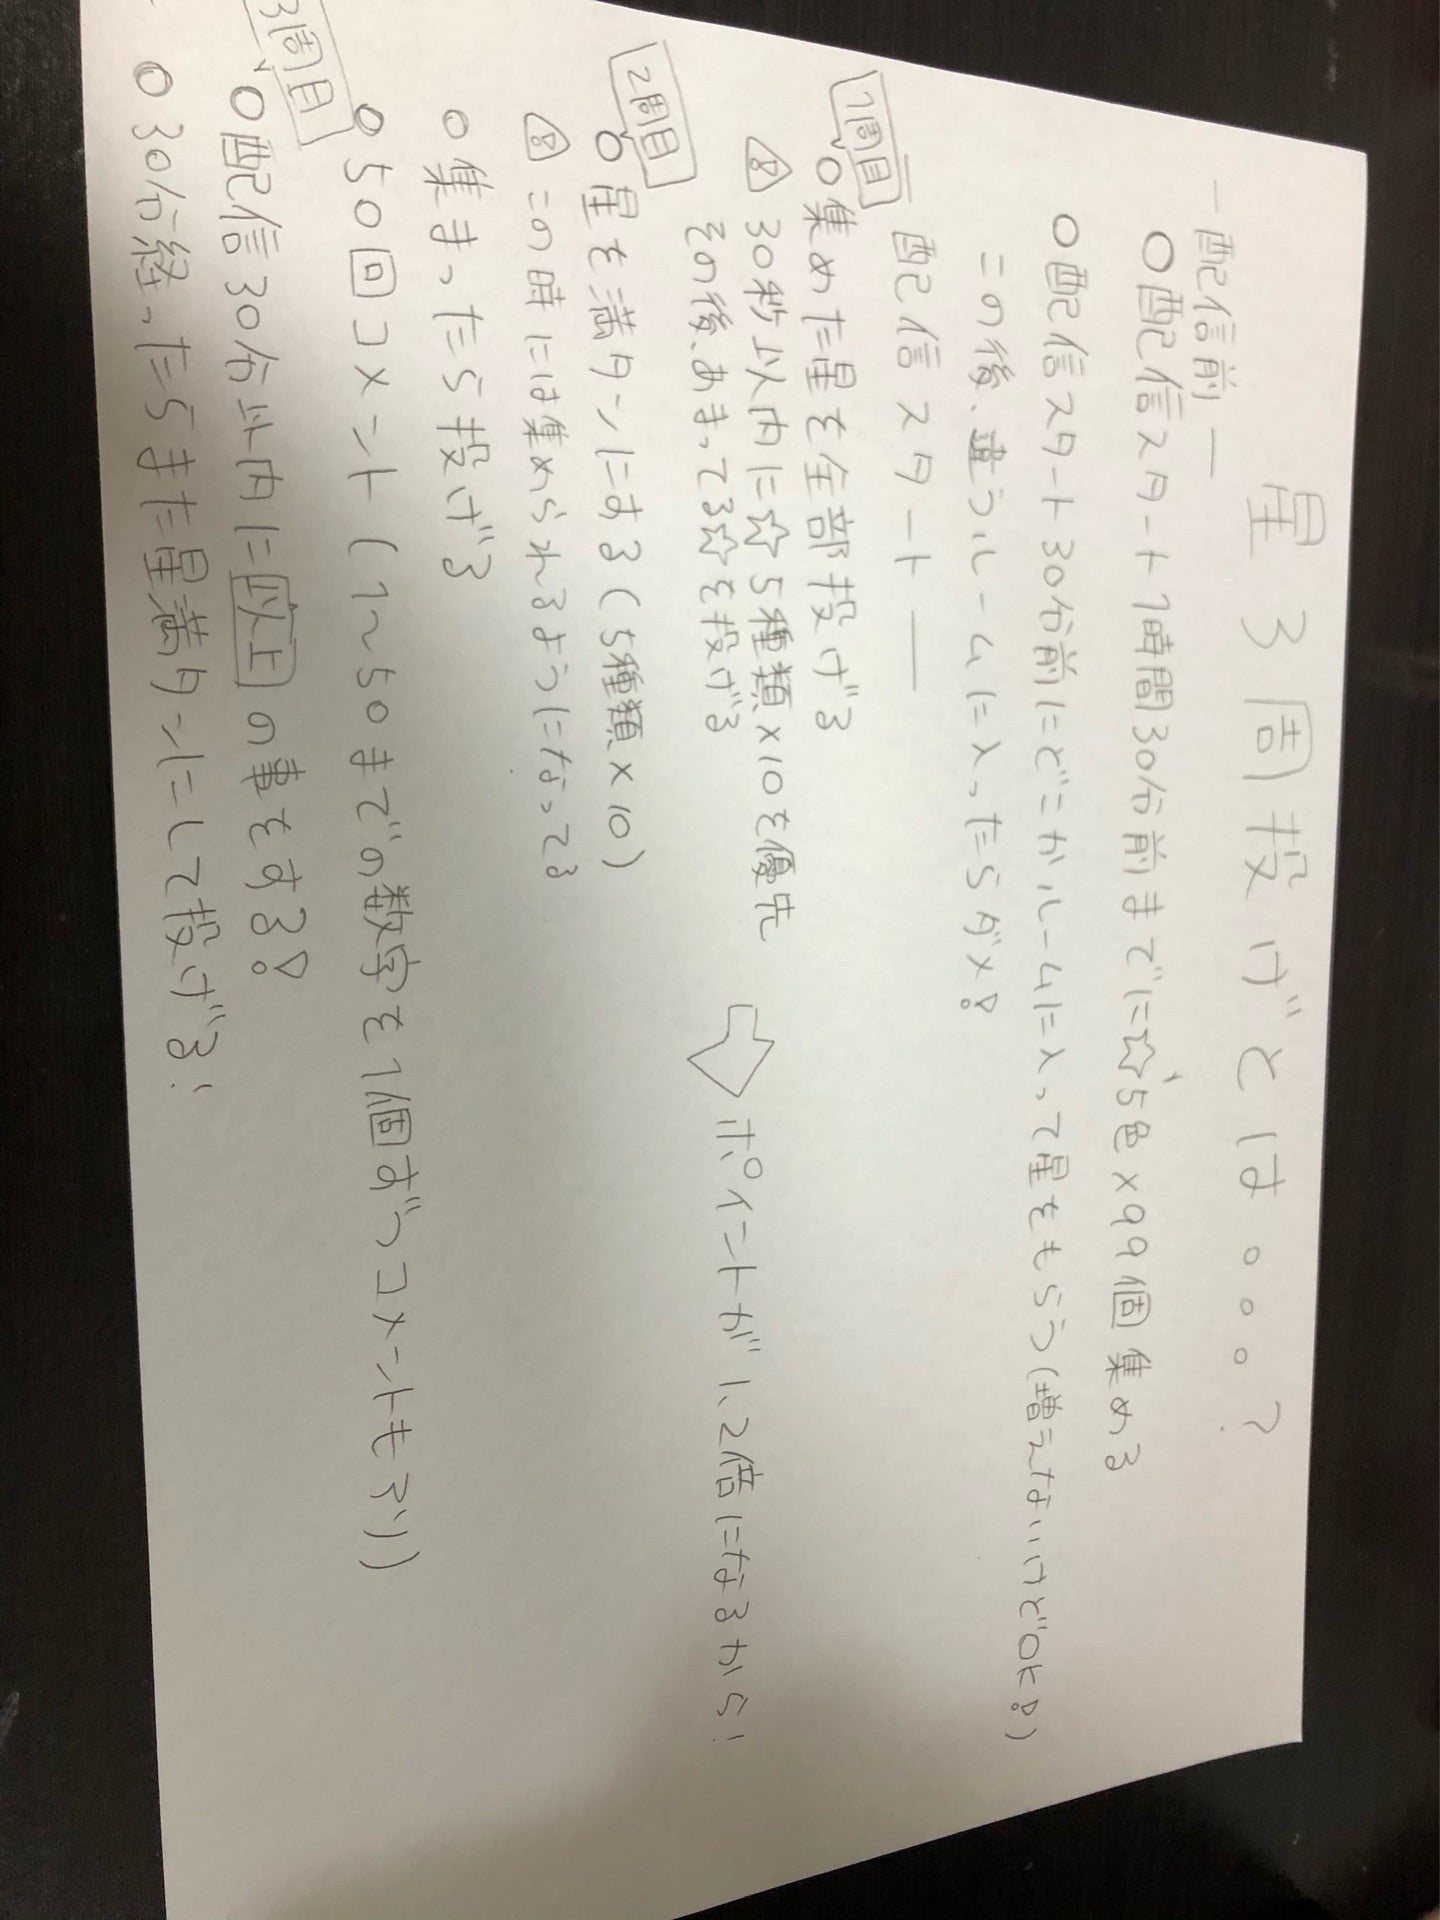 星3周投げとは。。。?
ー配信前ー
○配信スタート1時間30分前までに☆5色×99個集める
○配信スタート30分前にどこかルームに入って星をもらう(増えないけどOK!)
この後、違うルームに入ったらダメ!
配信スタート
1周目
○集めた星を全部投げる
30秒以内に☆5種類×10を優先
その後、あまってる☆を投げる
⇨ ポイントが1、2倍になるから!
2周目
○星を満タンにする(5種類×10)
この時には集められるようになってる
○集まったら投げる
○50回コメント(1~50までの数字を1個ずつコメントもアリ)
3周目
○配信30分以内に以上の事をする!
○30分経ったらまた星満タンにして投げる!